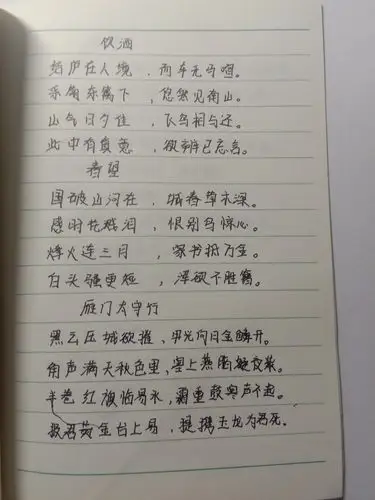 饮酒
结庐在人境，而车无马喧。
采菊东篱下，悠然见南山。
山气日夕佳，飞鸟相与还。
此中有真意，欲辨已忘言。
春望
国破山河在，城春草木深。
感时花溅泪，恨别鸟惊心。
烽火连三月，家书抵万金。
白头搔更短，浑欲不胜簪。
雁门太守行
黑云压城欲摧，甲光向日金鳞开。
角声满天秋色里，塞上燕脂凝夜紫。
半卷红旗临易水，霜重鼓寒声不起。
报君黄金台上易，提携玉龙为君死。